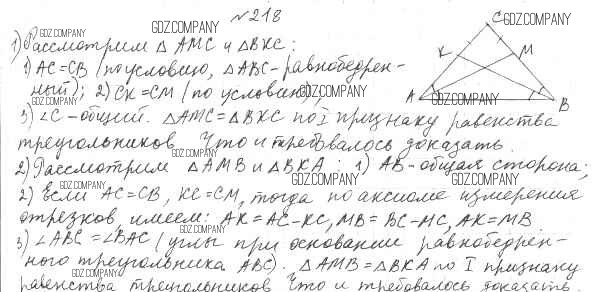 №218
GDZ.COMPANY
1) Рассмотрим △ AMC и △BKC:
1) AC=CB (по условию, △ABC - равнобедрен-
ный); 2) CK=CM (по условию);
3) ∠C - общий. △AMC=△BKC по I признаку равенства
треугольников. Что и требовалось доказать.
2) Рассмотрим △AMB и △BKA: 1) AB - общая сторона;
2) Если AC=CB, KC=CM, тогда по аксиоме измерения
отрезков имеем: AK=AC-KC, MB=BC-MC, AK=MB
3) ∠ABC=∠BAC (углы при основании равнобедрен-
ного треугольника ABC). △AMB=△BKA по I признаку
равенства треугольников. Что и требовалось доказать.
C
K
M
A
B
GDZ.COMPANY
GDZ.COMPANY
GDZ.COMPANY
GDZ.COMPANY
GDZ.COMPANY
GDZ.COMPANY
GDZ.COMPANY
GDZ.COMPANY
GDZ.COMPANY
GDZ.COMPANY
GDZ.COMPANY
GDZ.COMPANY